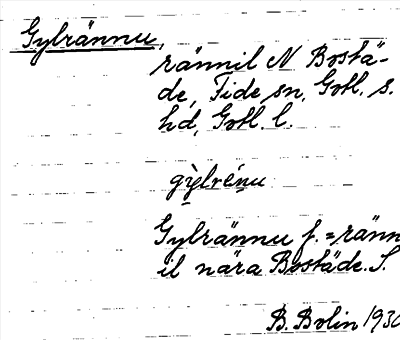 Gylrännu,
rännil N Bostä-
de, Fide sn, Gotl. s.
hd, Gotl. l.
gỳlrénu
Gylrännu f. = ränn
il nära Bostäde. S.
B. Bolin 1930